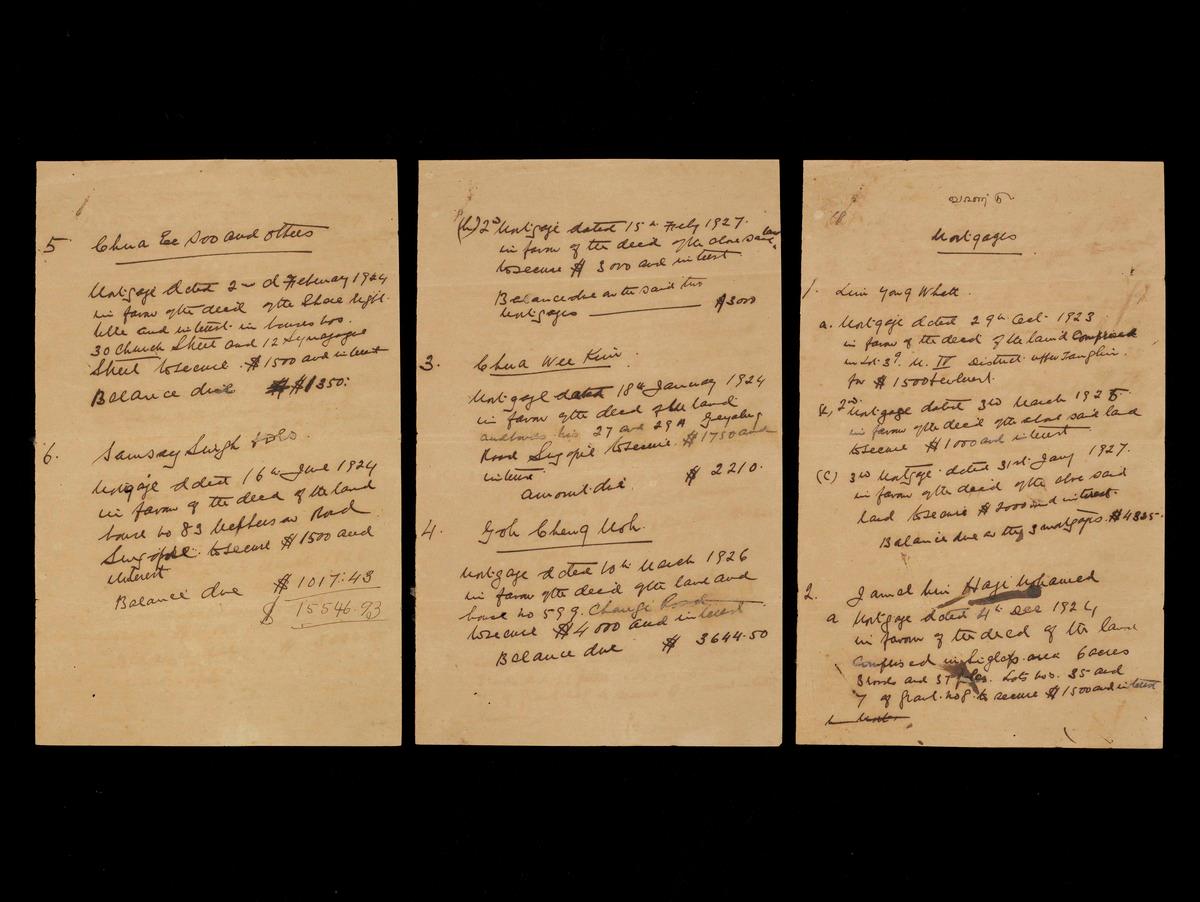 Mortgages
1. Lim Yong Whatt
a. Mortgage dated 29th Oct. 1923
in favor of the decd of the land Comprised
in Lot 39 M. IV District upper Tanglin.
for $1500 & interest.
b, 2nd Mortgage dated 3rd March 1925
in favor of the decd of the above said land
to secure $1000 and interest
(c) 3rd Mortgage dated 31st Jany 1927.
in favor of the decd of the above said
land to secure $2000 and interest.
Balance due on the 3 mortgages. $4325.
2. Jamal bin Haji Mohamed
a Mortgage dated 4th Dec 1924
in favour of the decd of the land
Comprised in Siglap area 6 acres
3 roods and 37 poles. Lots Nos. 35 and
7 of grant. No 9. to secure $1500 and interest
(b) 2nd Mortgage dated 15th Feby 1927.
in favor of the decd of the above said land
to secure $3000 and interest
Balance due on the said two
Mortgages $3000
3. Chua Wee Kim
Mortgage dated 18th January 1924
in favor of the decd of the land
and houses Nos 27 and 29A Geylang
Road Singapore to secure $1750 and
interest
Amount due $2210.
4. Goh Cheng Noh.
Mortgage dated 10th March 1926
in favor of the decd of the land and
house No 599. Changi Road
to secure $4000 and interest
Balance due $3644.50
5 Chua Ee Soo and others
Mortgage dated 2nd February 1924
in favor of the decd of the Share right
title and interest in houses Nos.
30 Church Street and 12 Synagogue
Street to secure $1500 and interest
Balance due $1350:
6. Samsay Singh
Mortgage dated 16th June 1924
in favor of the decd of the land
house No 83 Road
Singapore to secure $1500 and
interest
Balance due $1017:43
$15546.93